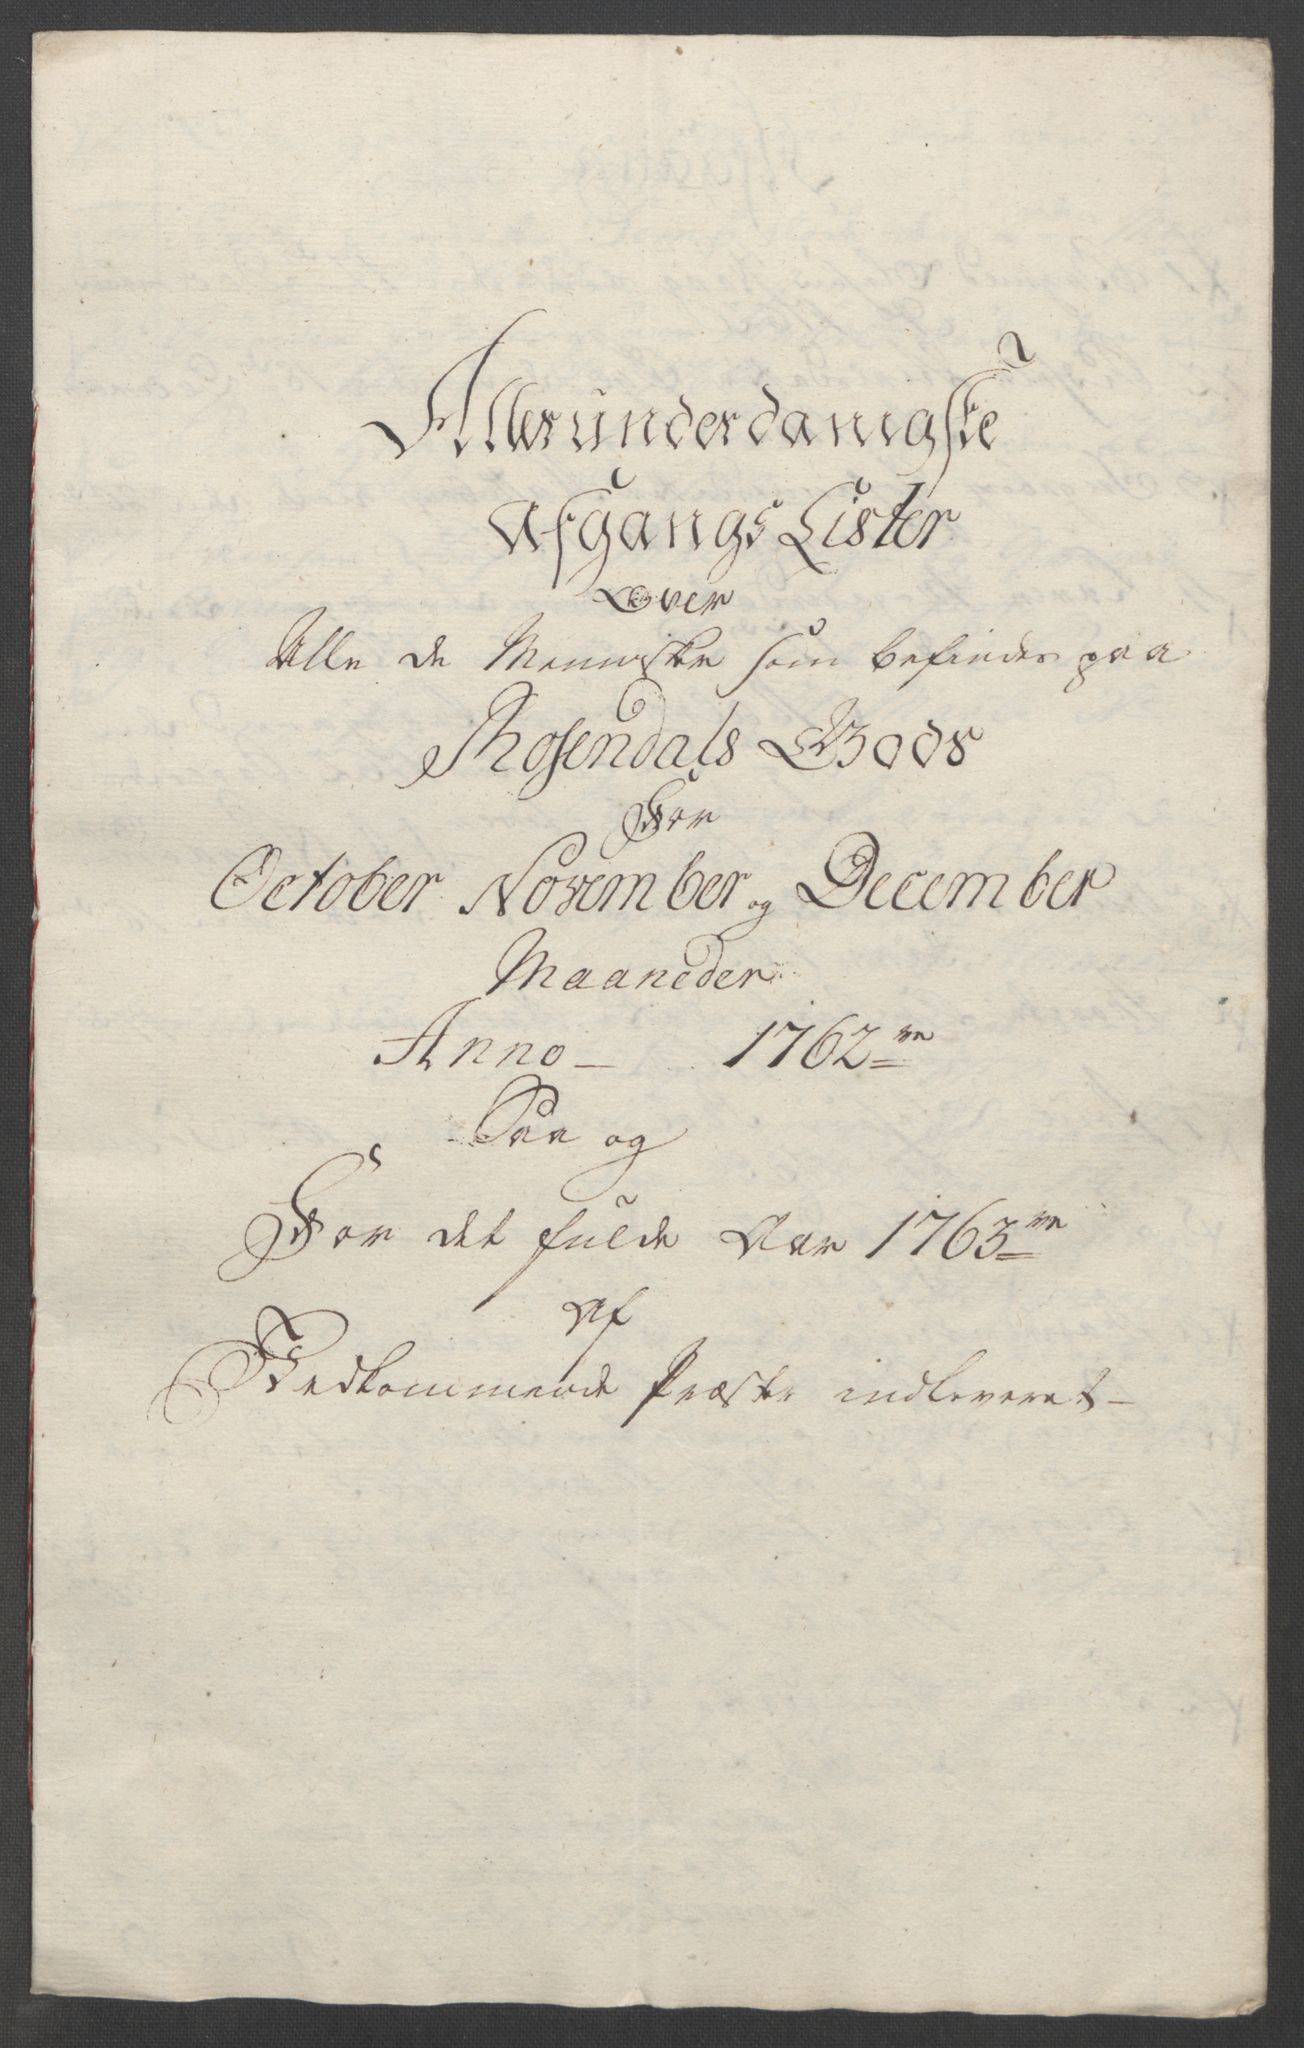 Allerunderdanigste
Afgangs Lister
Over
Alle de Menniske som befindes paa
Rosendals Gods
For
October November og December
Maaneder
Anno 1762=ve
Saa og
For det fulde Aar 1763=ve
Af
Vedkommende Præster indleveret-